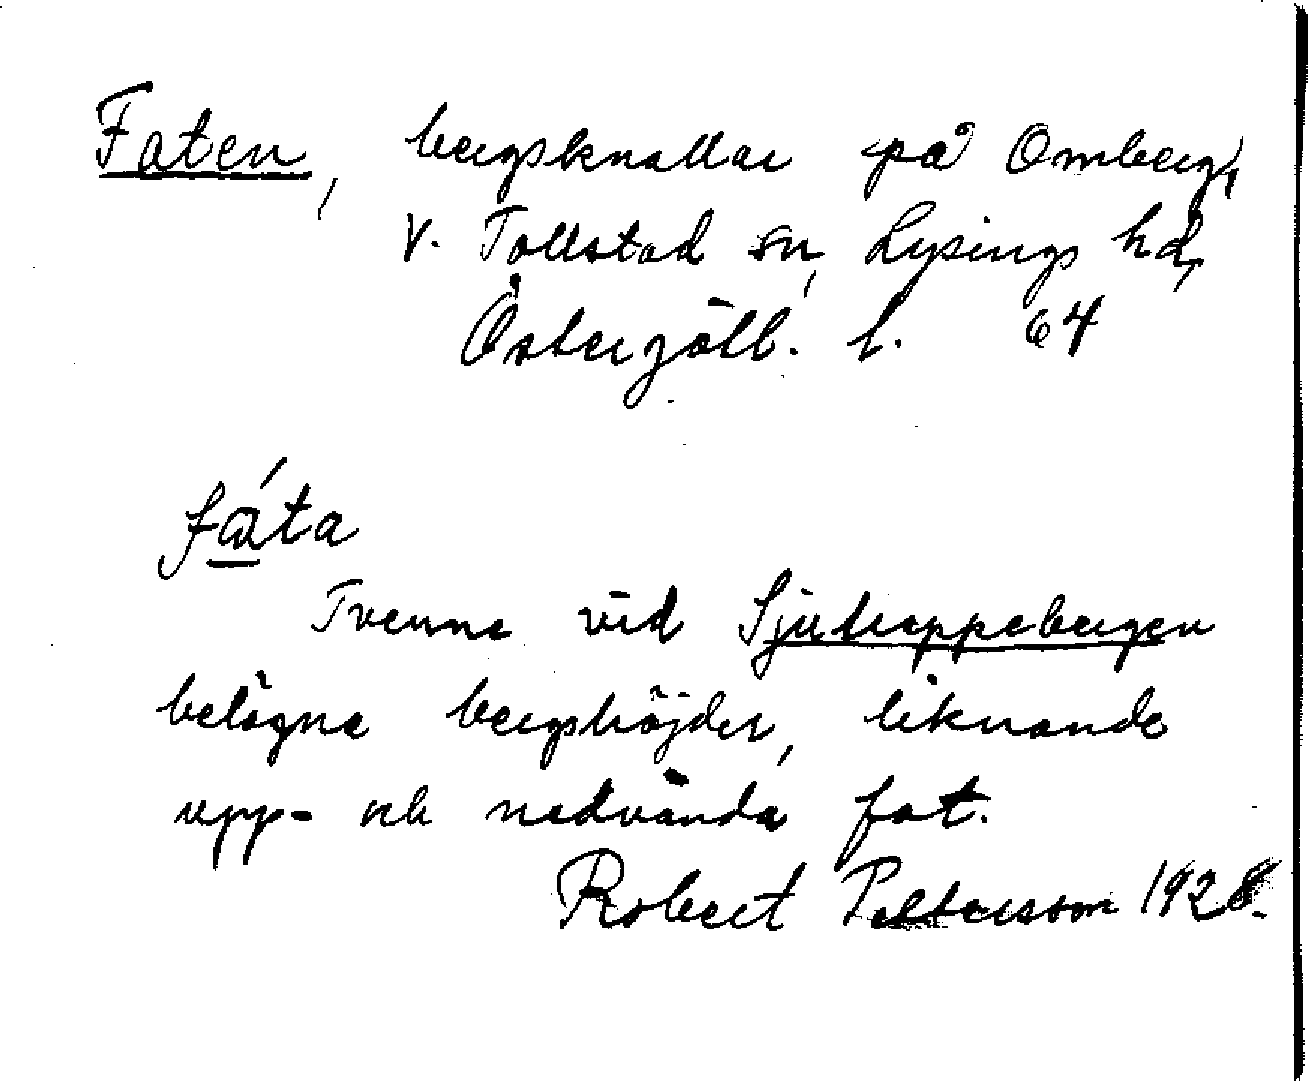 Faten, bergsknallar på Omberg,
V. Tollstad sn, Lysings hd,
Östergötl. l. 64
fáta
Tvenne vid Sjukoppebergen
belägna bergshöjder, liknande
upp- och nedvända fat.
Robert Pettersson 1928.